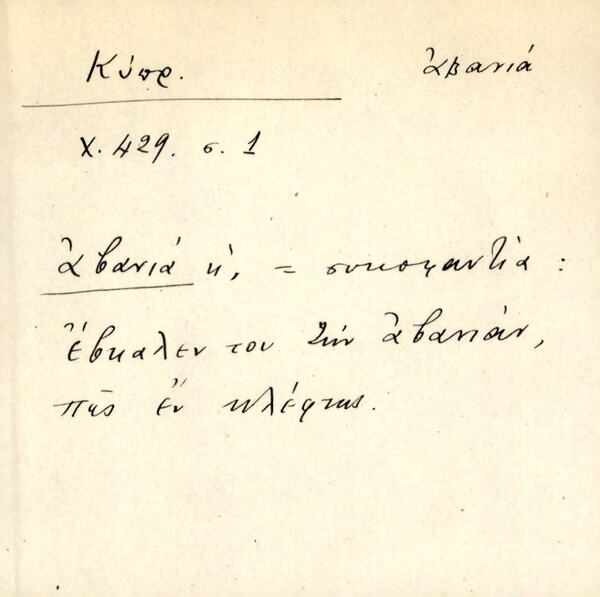 Κύπρ.
ἀβανιά
χ. 429. σ. 1
ἀβανιά ἡ, = συκοφαντία :
Ἔβκαλεν του τὴν ἀβανιάν,
πῶς ἔν κλέφτης.